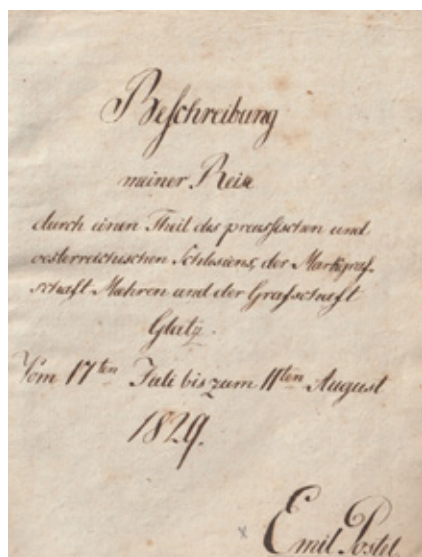 Beschreibung
meiner Reise
durch einen Theil des preussischen und
oesterreichischen Schlesiens, der Markgraf-
schaft Maehren und der Grafschaft
Glatz.
Vom 17ten Juli bis zum 11ten August
1829.
Emil Postel